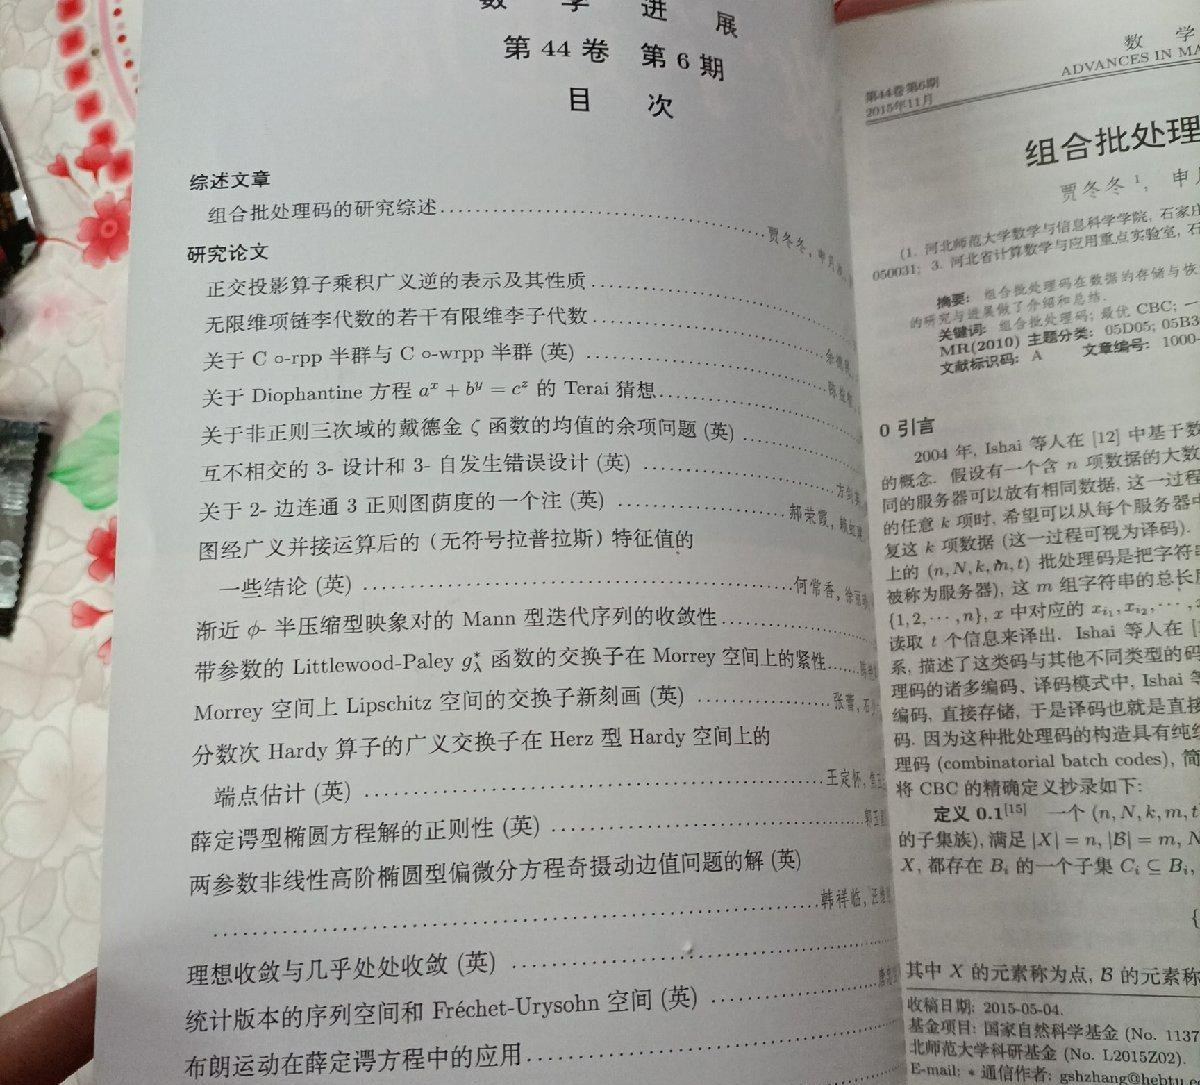 数 学 进 展
第 44 卷 第 6 期
目 次
综述文章
组合批处理码的研究综述 贾冬冬,
研究论文
正交投影算子乘积广义逆的表示及其性质
无限维项链李代数的若干有限维李子代数
关于 C o-rpp 半群与 C o-wrpp 半群 (英)
关于 Diophantine 方程 a^x + b^y = c^z 的 Terai 猜想
关于非正则三次域的戴德金 ζ 函数的均值的余项问题 (英)
互不相交的 3- 设计和 3- 自发生错误设计 (英)
关于 2- 边连通 3 正则图荫度的一个注 (英) 郝荣霞,
图经广义并接运算后的（无符号拉普拉斯）特征值的
一些结论 (英) 何常香,
渐近 ϕ- 半压缩型映象对的 Mann 型迭代序列的收敛性
带参数的 Littlewood-Paley g*λ 函数的交换子在 Morrey 空间上的紧性
Morrey 空间上 Lipschitz 空间的交换子新刻画 (英) 张蕾,
分数次 Hardy 算子的广义交换子在 Herz 型 Hardy 空间上的
端点估计 (英) 王定怀,
薛定谔型椭圆方程解的正则性 (英)
两参数非线性高阶椭圆型偏微分方程奇摄动边值问题的解 (英)
韩祥临,
理想收敛与几乎处处收敛 (英)
统计版本的序列空间和 Fréchet-Urysohn 空间 (英)
布朗运动在薛定谔方程中的应用
数 学
第44卷第6期
ADVANCES IN MA
2015年11月
组合批处理
贾冬冬 1, 申
(1. 河北师范大学数学与信息科学学院, 石家庄
050031; 3. 河北省计算数学与应用重点实验室, 石
摘要: 组合批处理码在数据的存储与恢
的研究与进展做了介绍和总结.
关键词: 组合批处理码; 最优 CBC; 一
MR(2010) 主题分类: 05D05; 05B3
文献标识码: A 文章编号: 1000-
0 引言
2004 年, Ishai 等人在 [12] 中基于数
的概念. 假设有一个含 n 项数据的大数
同的服务器可以放有相同数据, 这一过程
的任意 k 项时, 希望可以从每个服务器中
复这 k 项数据 (这一过程可视为译码).
上的 (n, N, k, m, t) 批处理码是把字符串
被称为服务器), 这 m 组字符串的总长度
{1, 2, ⋯, n}, x 中对应的 x_i1, x_i2, ⋯,
读取 t 个信息来译出. Ishai 等人在 [
系, 描述了这类码与其他不同类型的码
理码的诸多编码、译码模式中, Ishai 等
编码, 直接存储, 于是译码也就是直接
码. 因为这种批处理码的构造具有纯组
理码 (combinatorial batch codes), 简
将 CBC 的精确定义抄录如下:
定义 0.1[15] 一个 (n, N, k, m, t
的子集族), 满足 |X| = n, |B| = m, N
X, 都存在 B_i 的一个子集 C_i ⊆ B_i,
{
其中 X 的元素称为点, B 的元素称
收稿日期: 2015-05-04.
基金项目: 国家自然科学基金 (No. 1137
北师范大学科研基金 (No. L2015Z02).
E-mail: * 通信作者: gshzhang@hebtu.c